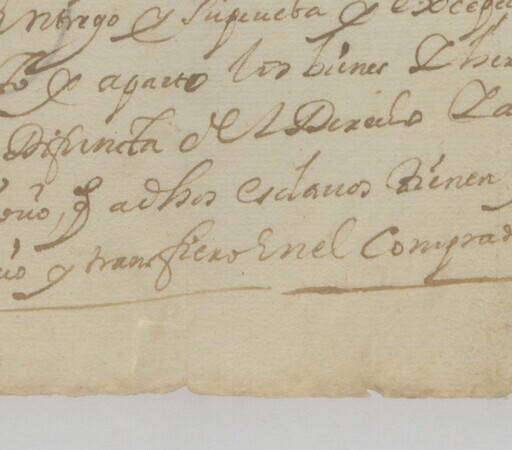 Entrego y su prueba y excepc
to y aparto los bienes y her
Difuncta del Derecho
q adhos esclavos tienen
y transfiero en el Comprad